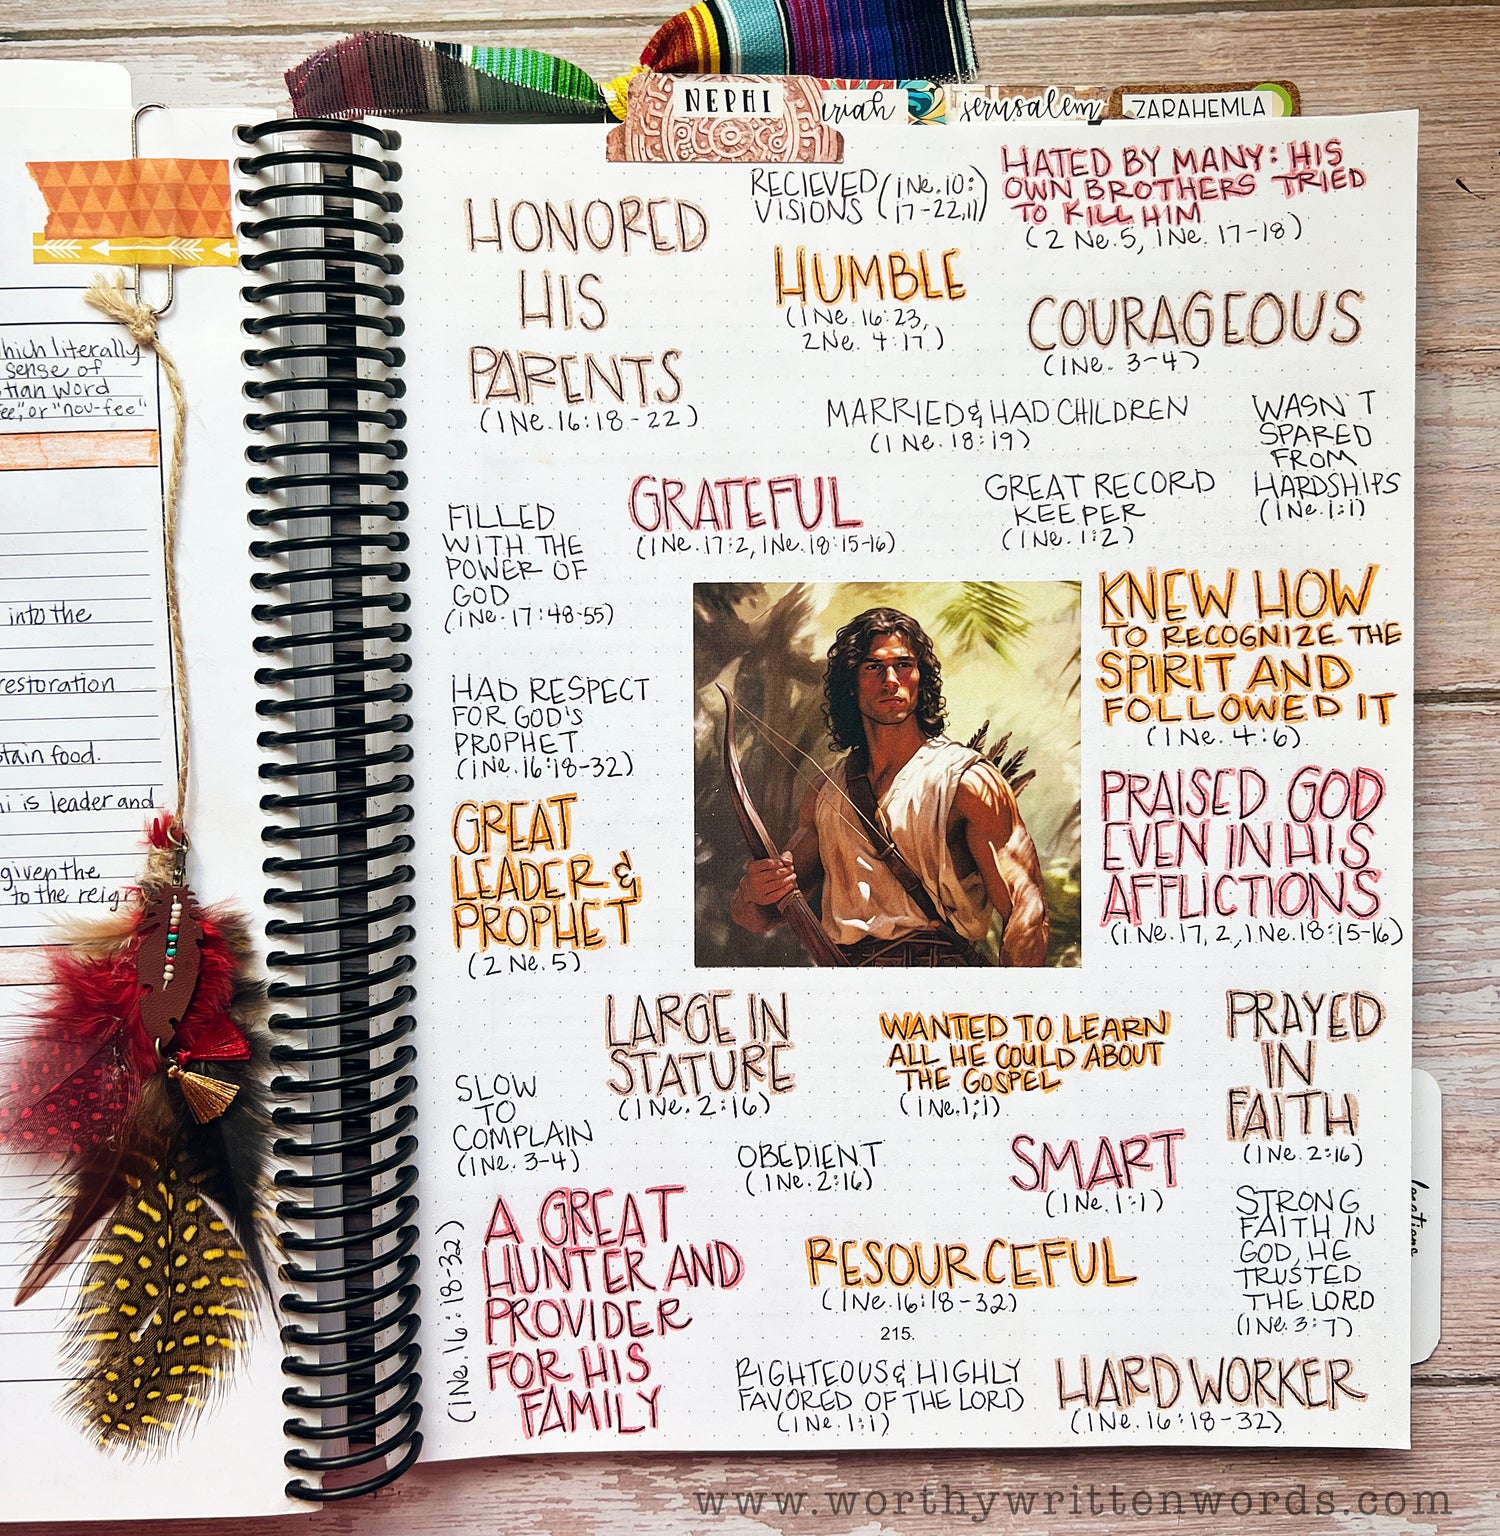 NEPHI
jerusalem
ZARAHEMLA
which literally
sense of
word
"nou-fee"
into the
restoration
food.
is leader and
given the
to the reign
HONORED
HIS
PARENTS
(1 Ne. 16:18-22)
RECIEVED
VISIONS
(1 Ne. 10:
17-22, 11)
HATED BY MANY: HIS
OWN BROTHERS TRIED
TO KILL HIM
(2 Ne. 5, 1Ne. 17-18)
HUMBLE
(1Ne. 16:23,
2Ne. 4:17)
COURAGEOUS
(1Ne. 3-4)
MARRIED & HAD CHILDREN
(1 Ne. 18:19)
WASN'T
SPARED
FROM
HARDSHIPS
(1Ne. 1:1)
GRATEFUL
(1Ne. 17:2, 1Ne. 18:15-16)
GREAT RECORD
KEEPER
(1Ne. 1:2)
FILLED
WITH THE
POWER OF
GOD
(1Ne. 17:48-55)
KNEW HOW
TO RECOGNIZE THE
SPIRIT AND
FOLLOWED IT
(1Ne. 4:6)
HAD RESPECT
FOR GOD'S
PROPHET
(1Ne. 16:18-32)
PRAISED GOD
EVEN IN HIS
AFFLICTIONS
(1 Ne. 17, 2, 1Ne. 18:15-16)
GREAT
LEADER &
PROPHET
(2 Ne. 5)
LARGE IN
STATURE
(1Ne. 2:16)
WANTED TO LEARN
ALL HE COULD ABOUT
THE GOSPEL
(1Ne. 1;1)
PRAYED
IN
FAITH
(1Ne. 2:16)
SLOW
TO
COMPLAIN
(1Ne. 3-4)
OBEDIENT
(1Ne. 2:16)
SMART
(1Ne. 1:1)
STRONG
FAITH IN
GOD, HE
TRUSTED
THE LORD
(1Ne. 3:7)
A GREAT
HUNTER AND
PROVIDER
FOR HIS
FAMILY
(1Ne. 16:18-32)
RESOURCEFUL
(1Ne. 16:18-32)
215.
RIGHTEOUS & HIGHLY
FAVORED OF THE LORD
(1Ne. 1:1)
HARD WORKER
(1Ne. 16:18-32)
www.worthywrittenwords.com